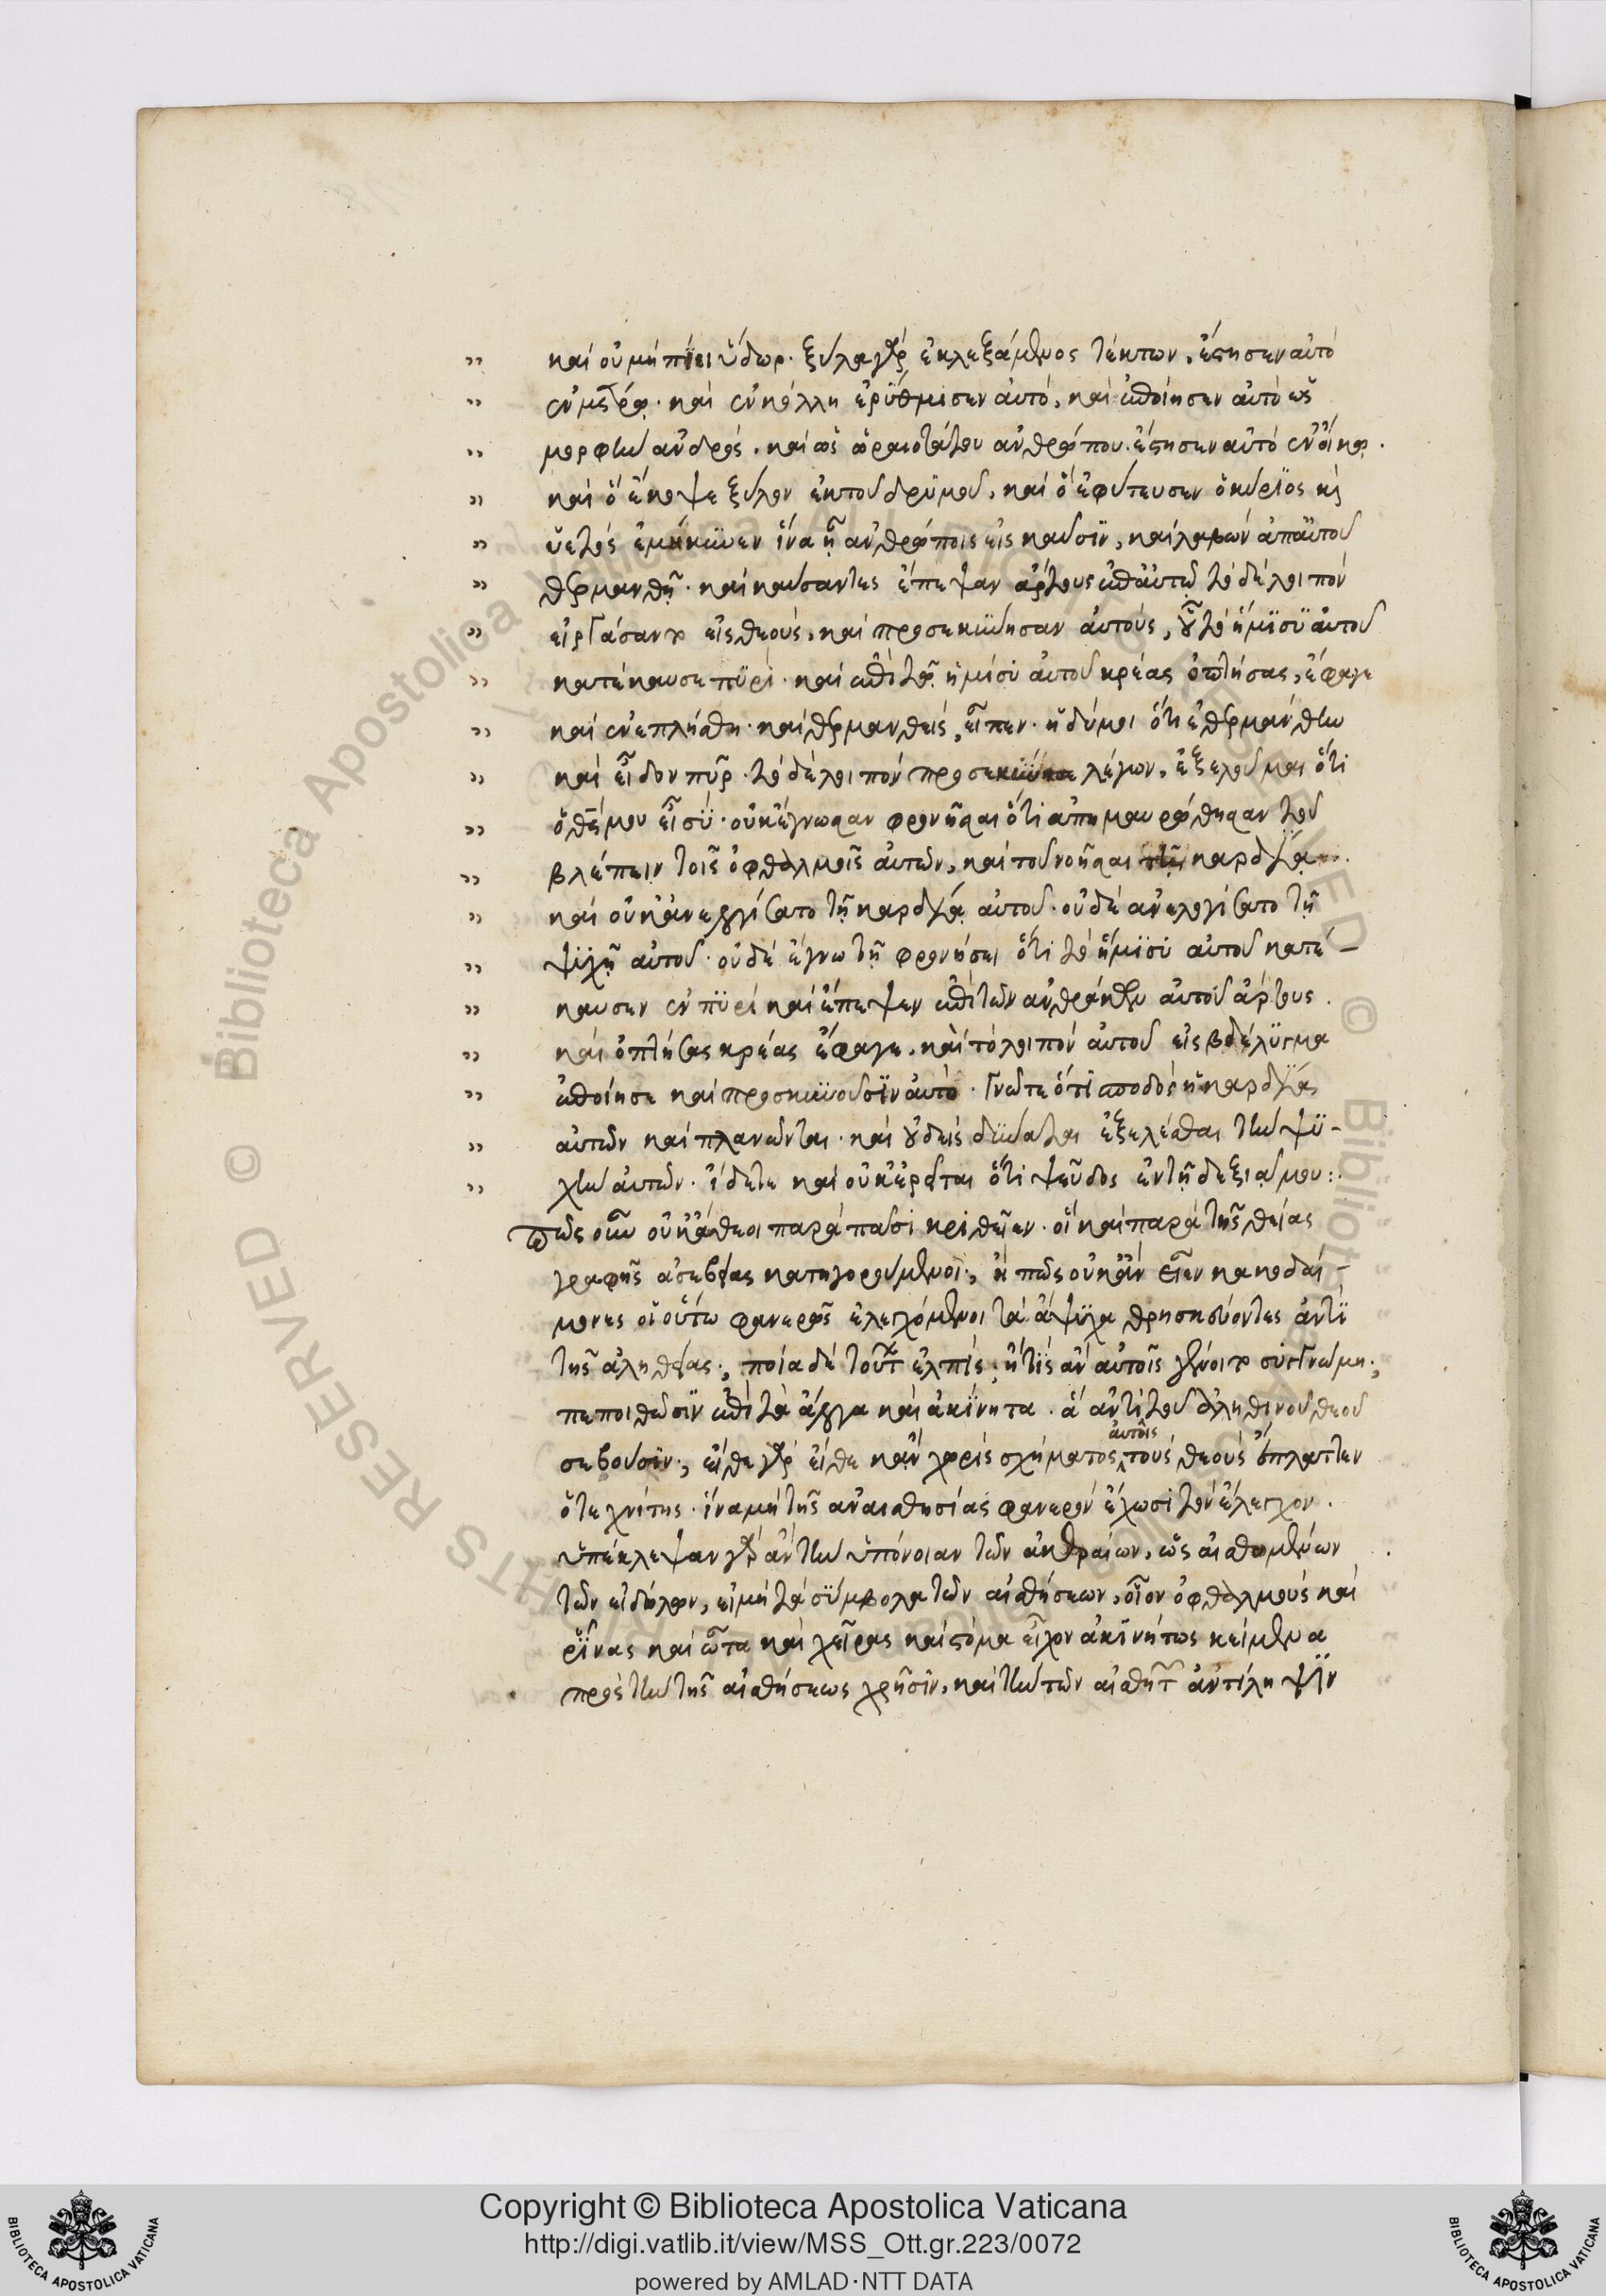 καὶ οὐ μὴ πίει ὕδωρ· ξύλα γὰρ ἐκλεξάμενος τέκτων, ἔστησεν αὐτὸ
ἐν μέτρω· καὶ ἐν κόλλη ἐρύθμισεν αὐτὸ, καὶ ἐποίησεν αὐτὸ ὡς
μορφὴν ἀνδρὸς, καὶ ὡς ὡραιοτάτου ἀνθρώπου. ἔστησεν αὐτὸ ἐν οἴκω.
καὶ ὃ ἔκοψε ξύλον ἐκ τοῦ δρυμοῦ, καὶ ὃ ἐφύτευσεν ὁ κύριος καὶ
ὑετὸς ἐμήκυνεν ἵνα ἦ ἀνθρώποις εἰς καῦσιν, καὶ λαβὼν ἀπ' αὐτοῦ
θερμανθῆ· καὶ καύσαντες ἔπεψαν ἄρτους ἐπ' αὐτῶ τὸ δὲ λοιπὸν
εἰργάσαντο εἰς θεοὺς, καὶ προσεκύνησαν αὐτοὺς, οὗ τὸ ἥμισυ αὐτοῦ
κατέκαυσε πυρί· καὶ ἐπὶ τῶ ἡμίσυ αὐτοῦ κρέας ὀπτήσας, ἔφαγε
καὶ ἐνεπλήσθη· καὶ θερμανθεὶς, εἶπεν· ἡδύ μοι ὅτι ἐθερμάνθην
καὶ εἶδον πῦρ· τὸ δὲ λοιπὸν προσεκύνησε λέγων, ἐξελοῦ μαι ὅτι
ὁ θεός μου εἶ σύ· οὐκ ἔγνωσαν φρονῆσαι ὅτι ἀπημαυρώθησαν τοῦ
βλέπειν τοῖς ὀφθαλμοῖς αὐτῶν, καὶ τοῦ νοῆσαι τῆ καρδία.
καὶ οὐκ ἀνελογίσατο τῆ καρδία αὐτοῦ· οὐδὲ ἀνελογίσατο τῆ
ψυχῆ αὐτοῦ· οὐδὲ ἔγνω τῆ φρονήσει ὅτι τὸ ἥμισυ αὐτοῦ κατέ-
καυσεν ἐν πυρὶ καὶ ἔπεψεν ἐπὶ τῶν ἀνθράκων αὐτοῦ ἄρτους.
καὶ ὀπτήσας κρέας ἔφαγε, καὶ τὸ λοιπὸν αὐτοῦ εἰς βδέλυγμα
ἐποίησε καὶ προσκυνοῦσιν αὐτὸ· Γνῶτε ὅτι σποδὸς ἡ καρδία
αὐτῶν καὶ πλανῶνται· καὶ οὐδεὶς δύναται ἐξελέσθαι τὴν ψυ-
χὴν αὐτῶν· ἴδετε καὶ οὐκ ἐρεῖται ὅτι ψεῦδος ἐν τῆ δεξιᾶ μου:
πῶς οὖν οὐκ ἄθεοι παρὰ πᾶσι κριθεῖεν· οἳ καὶ παρὰ τῆς θείας
γραφῆς ἀσεβείας κατηγορούμενοι; ἢ πῶς οὐκ ἂν εἶεν κακοδαί-
μονες οἱ οὕτω φανερῶς ἐλεγχόμενοι τὰ ἄψυχα θρησκεύοντες ἀντὶ
τῆς ἀληθείας; ποία δὲ τούτοις ἐλπὶς; ἢ τίς ἂν αὐτοῖς γένοιτο συγγνώμη;
πεποιθῶσιν ἐπὶ τὰ ἄλογα καὶ ἀκίνητα· ἃ ἀντὶ τοῦ ἀληθινοῦ θεοῦ
σέβουσιν; εἴθε γὰρ εἴθε κἂν χωρὶς σχήματος αὐτοῖς τοὺς θεοὺς ἔπλαττεν
ὁ τεχνίτης· ἵνα μὴ τῆς ἀναισθησίας φανερὸν ἔχωσι τὸν ἔλεγχον.
ὑπέκλεψαν γὰρ ἂν τὴν ὑπόνοιαν τῶν ἀκεραίων, ὡς αἰσθομένων
τῶν εἰδώλων, εἰ μὴ τὰ σύμβολα τῶν αἰσθήσεων, οἷον ὀφθαλμοὺς καὶ
ῥῖνας καὶ ὦτα καὶ χεῖρας καὶ στόμα εἶχον ἀκινήτως κείμενα
πρὸς τὴν τῆς αἰσθήσεως χρῆσιν, καὶ τὴν τῶν αἰσθητῶν ἀντίληψιν
Copyright © Biblioteca Apostolica Vaticana
http://digi.vatlib.it/view/MSS_Ott.gr.223/0072
powered by AMLAD·NTT DATA